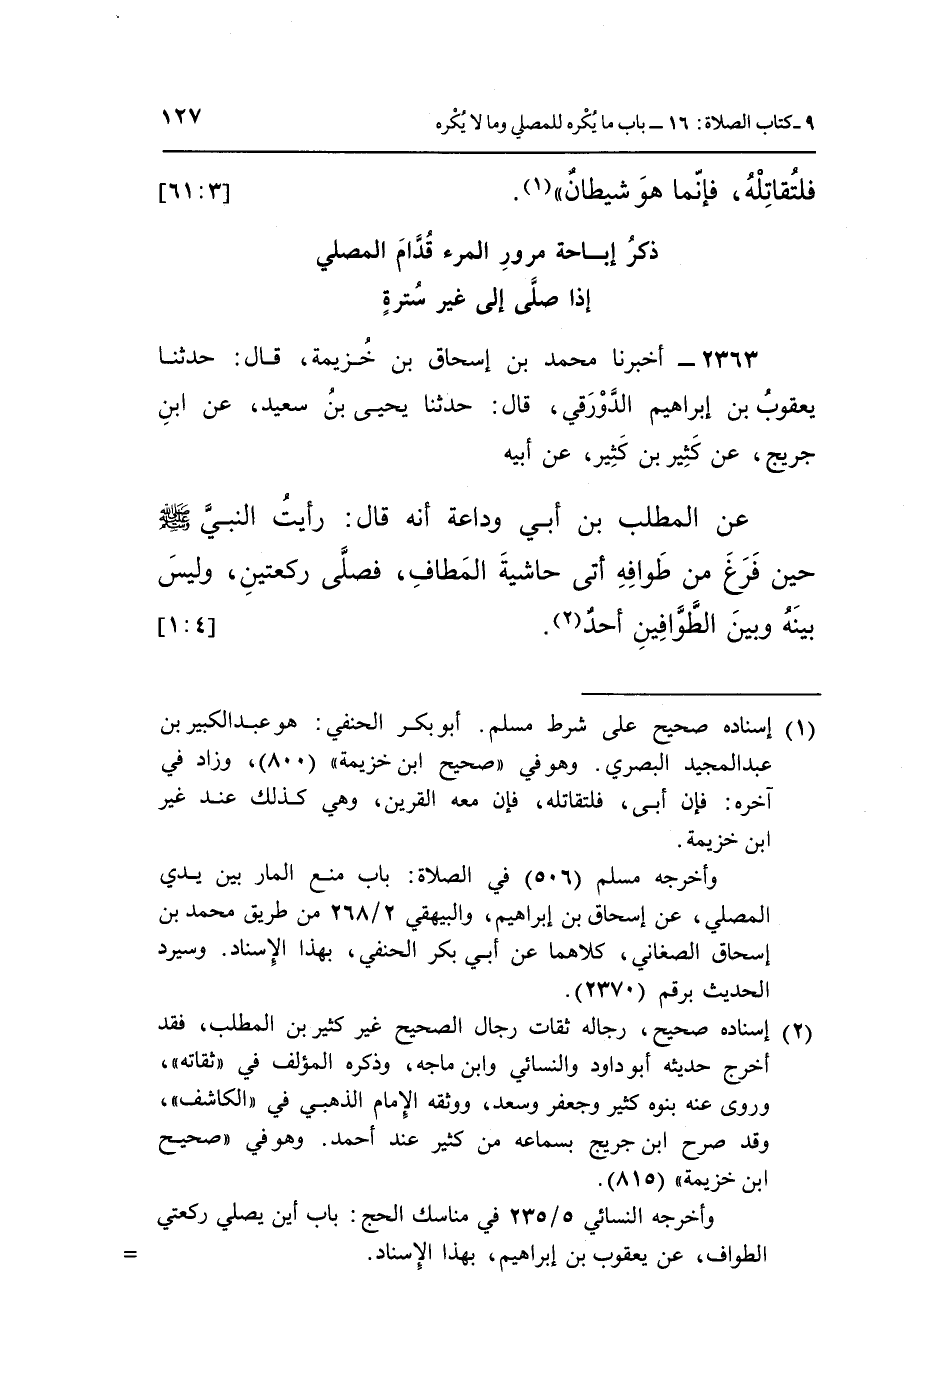 ٩ ـ كتاب الصلاة: ١٦ ـ باب ما يُكْره للمصلي وما لا يُكْره ١٢٧
فلتُقاتِلْهُ، فإنّما هوَ شيطانٌ»(١). [٦١:٣]
ذكرُ إبـاحة مرورِ المرء قُدَّامَ المصلي
إذا صلَّى إلى غير سُترةٍ
٢٣٦٣ ـ أخبرنا محمد بن إسحاق بن خُـزيمة، قـال: حدثنـا
يعقوبُ بن إبراهيم الدَّوْرَقي، قال: حدثنا يحيـى بنُ سعيد، عن ابنِ
جريج، عن كَثِير بن كَثِير، عن أبيه
عن المطلب بن أبـي وداعة أنه قال: رأيتُ النبـيَّ ﷺ
حين فَرَغَ من طَوافِهِ أتى حاشيةَ المَطافِ، فصلَّى ركعتينِ، وليسَ
بينَهُ وبينَ الطَّوَّافِينِ أحدٌ(٢). [١:٤]
(١) إسناده صحيح على شرط مسلم. أبو بكـر الحنفي: هو عبـد الكبير بن
عبد المجيد البصري. وهو في «صحيح ابن خزيمة» (٨٠٠)، وزاد في
آخره: فإن أبـى، فلتقاتله، فإن معه القرين، وهي كـذلك عنـد غير
ابن خزيمة.
وأخرجه مسلم (٥٠٦) في الصلاة: باب منـع المار بين يـدي
المصلي، عن إسحاق بن إبراهيم، والبيهقي ٢٦٨/٢ من طريق محمد بن
إسحاق الصغاني، كلاهما عن أبـي بكر الحنفي، بهذا الإسناد. وسيرد
الحديث برقم (٢٣٧٠).
(٢) إسناده صحيح، رجاله ثقات رجال الصحيح غير كثير بن المطلب، فقد
أخرج حديثه أبو داود والنسائي وابن ماجه، وذكره المؤلف في «ثقاته»،
وروى عنه بنوه كثير وجعفر وسعد، ووثقه الإمام الذهبـي في «الكاشف»،
وقد صرح ابن جريج بسماعه من كثير عند أحمد. وهو في «صحيـح
ابن خزيمة» (٨١٥).
وأخرجه النسائي ٢٣٥/٥ في مناسك الحج: باب أين يصلي ركعتي
الطواف، عن يعقوب بن إبراهيم، بهذا الإسناد. =